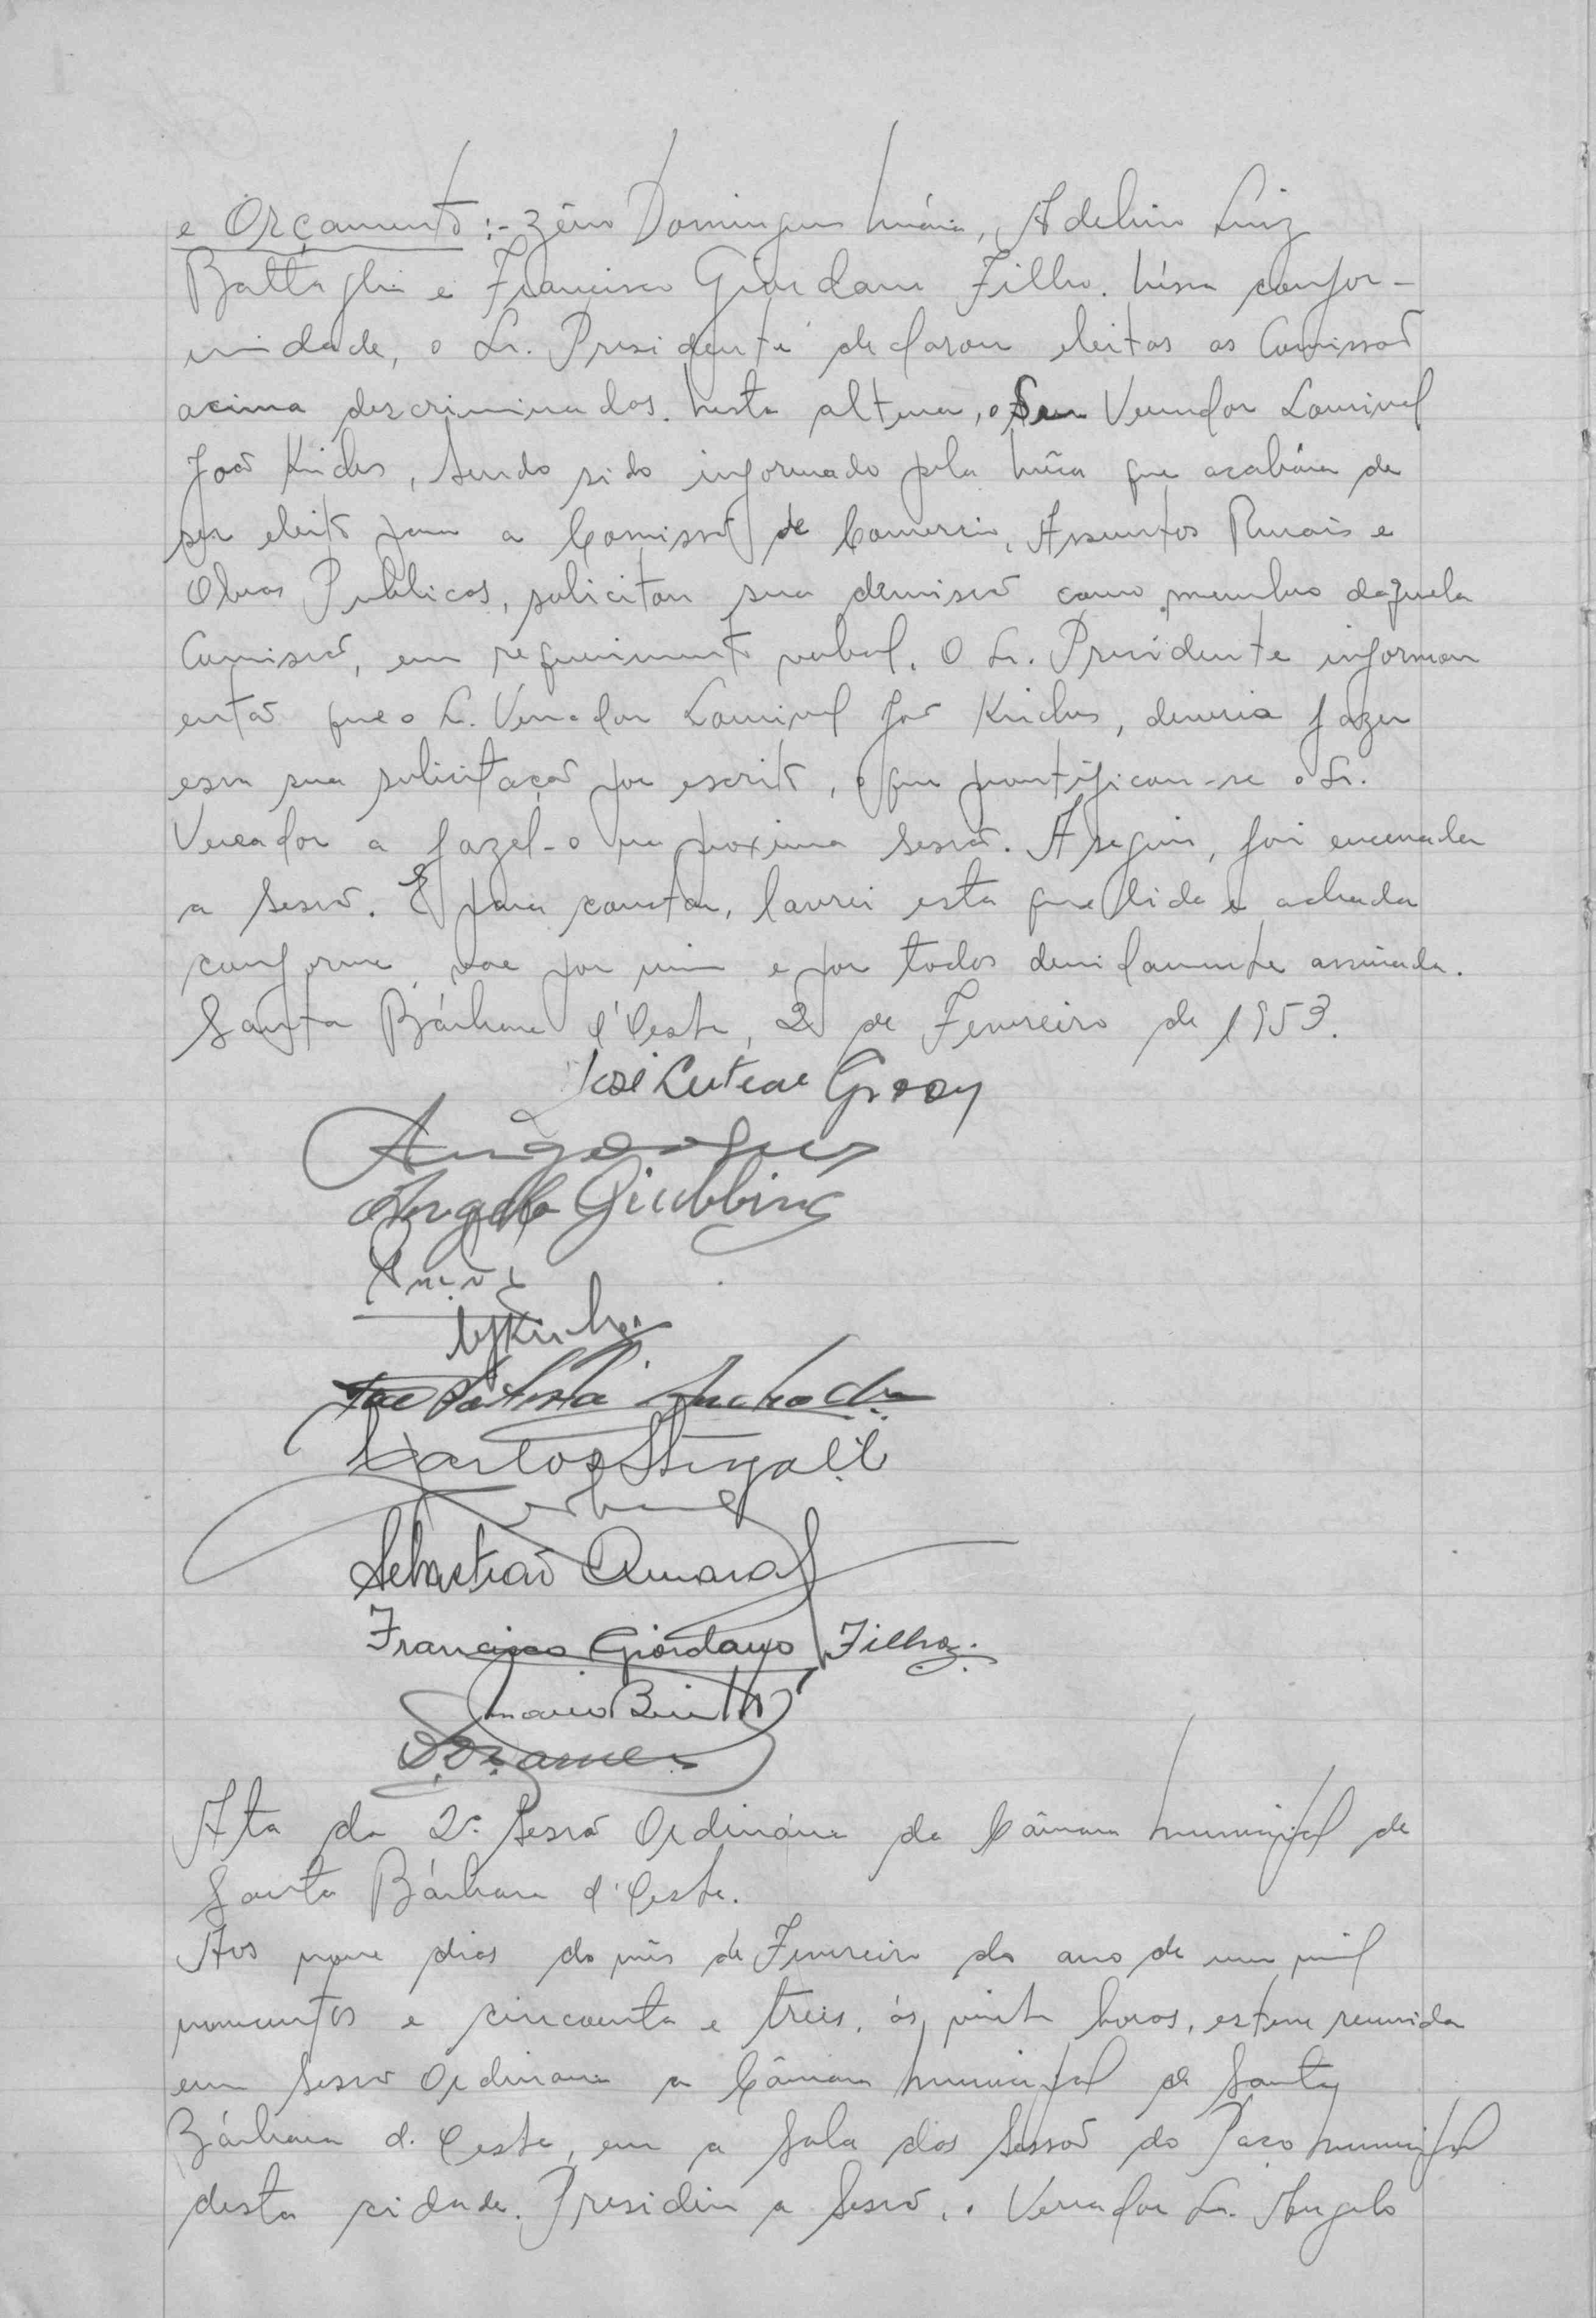 e Orçamento :- Zêno Domingues Máia, Adelino Luiz
Battaglia e Francisco Giordano Filho. Néssa confor-
midade, o Sr. Presidente declarou eleitas as Comissoẽs
acima descriminadas. Nesta altura, o Snr Vereador Lourival
João Kirches, tendo sido informado pela Mêsa que acabára de
ser eleito para a Comissão de Comercio, Assuntos Rurais e
Obras Publicas, solicitou sua demissão como membro daquela
Comissão, em requerimento verbal. O Sr. Presidente informou
então que o Sr. Vereador Lourival João Kirches, deveria fazer
essa sua solicitação por escrito, o que prontificou-se o Sr.
Vereador a fazel-o na proxima sessão. A seguir, foi encerrada
a Sessão. E para constar, lavrei esta que lida e achada
conforme, vae por mim e por todos devidamente assinada.
Santa Bárbara d'Oeste, 2 de Fevereiro de 1953.
José
Angelo Giubbina
Carlos Steagall
Sebastião Amaral
Francisco Giordano Filho.
Ata da 2ª Sessão Ordinária da Câmara Municipal de
Santa Bárbara d'Oeste.
Aos nove dias do mês de Fevereiro do ano de um mil
novecentos e cincoenta e treis, ás vinte horas, esteve reunida
em Sessão Ordinaria a Câmara Municipal de Santa
Bárbara d'Oeste, em a Sala das Sessoẽs do Paço Municipal
desta cidade. Presidiu a Sessão, o Vereador Sr. Angelo